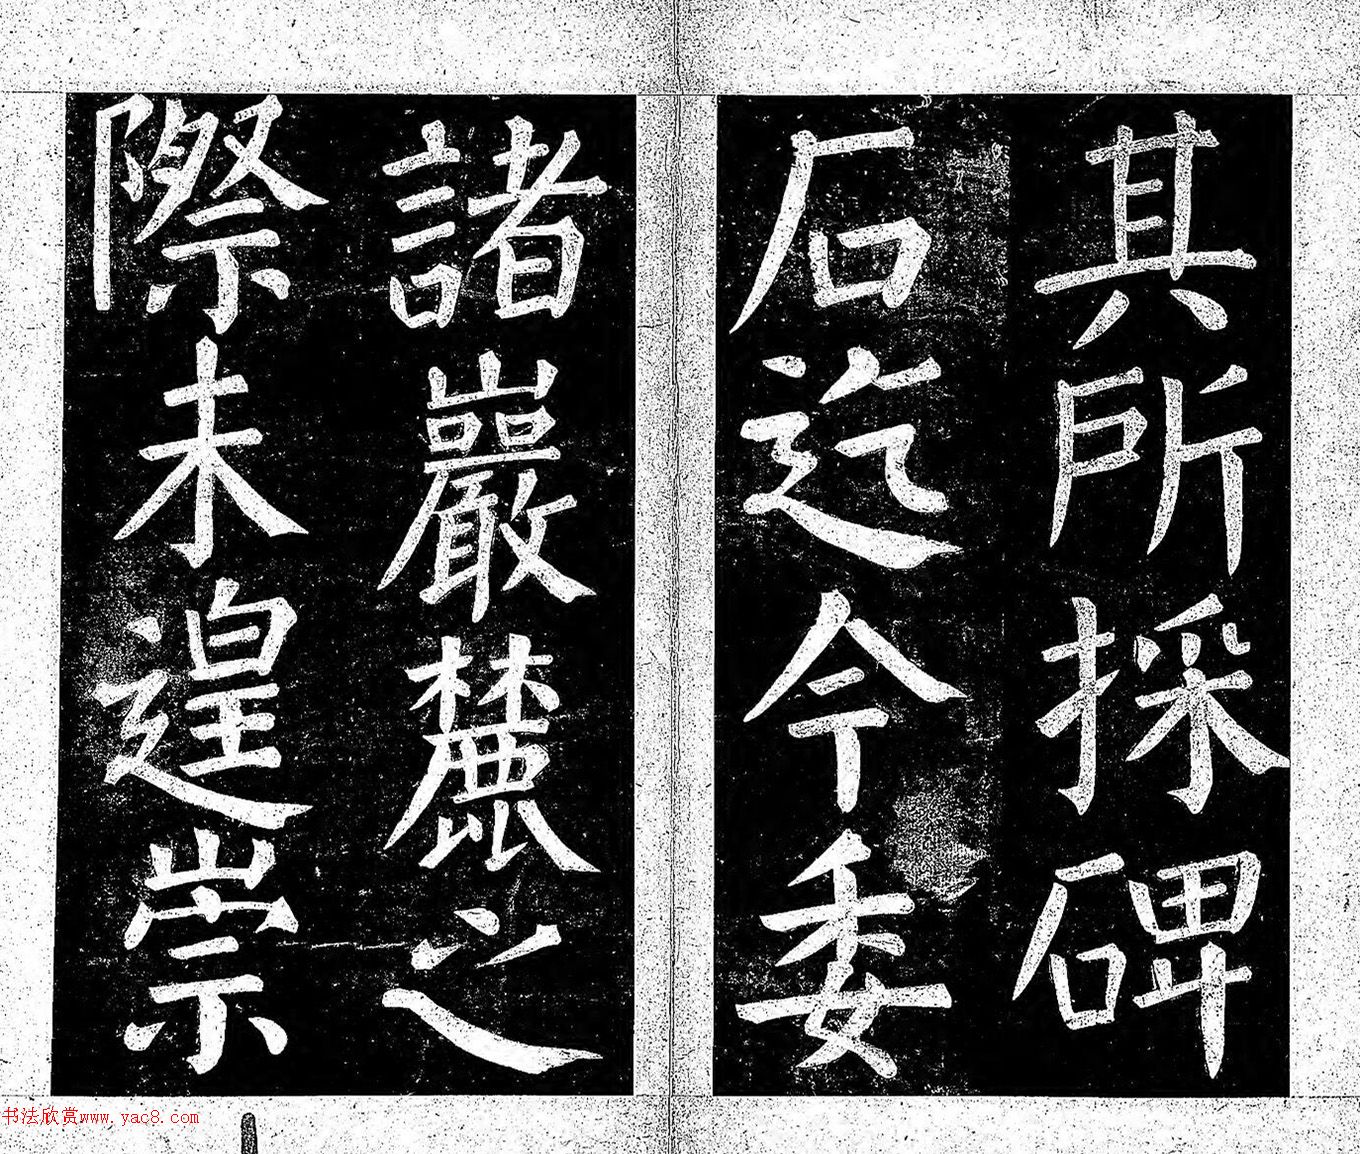 其所採碑
石迄今委
諸巖麓之
際未遑崇
书法欣赏www.yac8.com